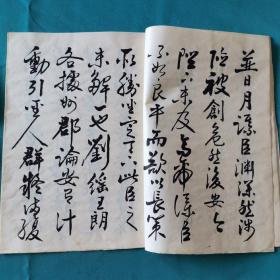 並日月謀臣淵深然涉
險被創危然後安今
陛下未及高帝謀臣
不如良平而欲以長策
取勝坐定天下此臣之
未解一也劉繇王朗
各據州郡論安言計
動引聖人群疑滿腹